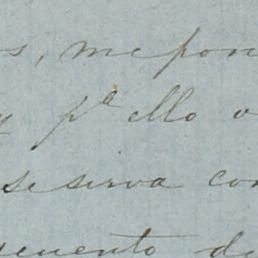 s, me pon
y pª ello o
se sirva con
umento de